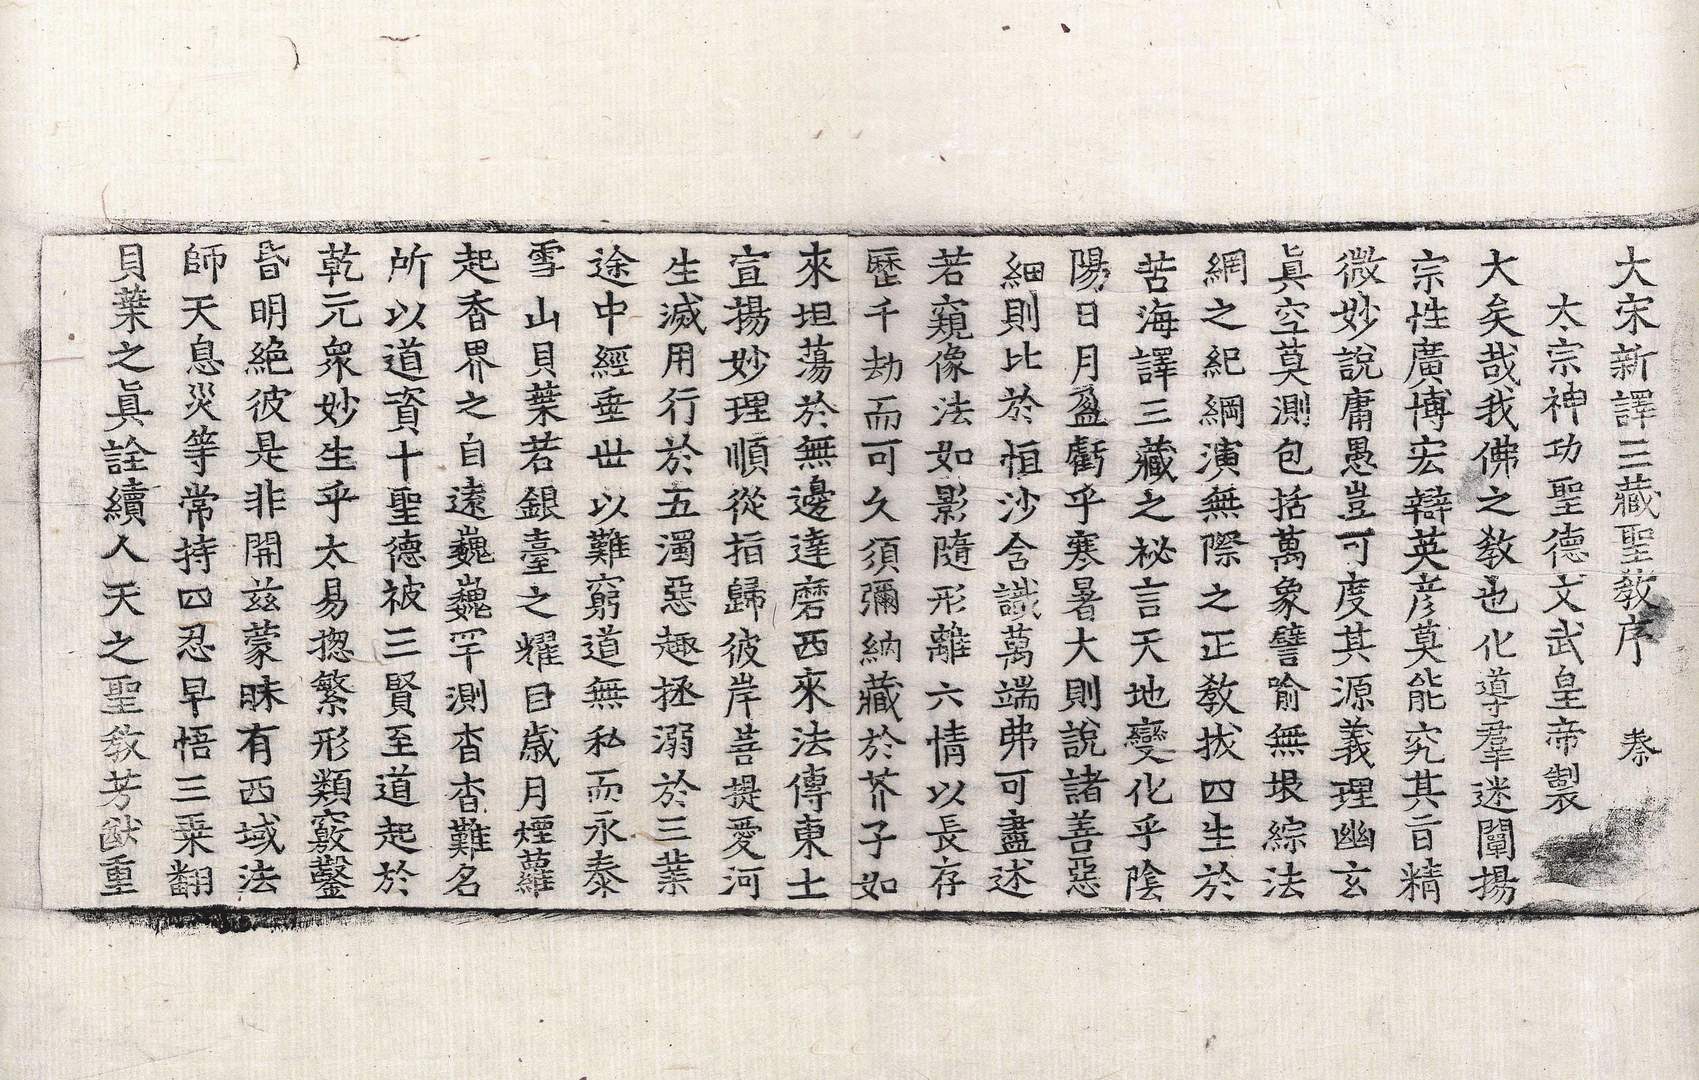 大宋新譯三藏聖教序　秦
太宗神功聖德文武皇帝製
大矣哉我佛之教也化導羣迷闡揚
宗性廣博宏辯英彥莫能究其旨精
微妙說庸愚豈可度其源義理幽玄
眞空莫測包括萬象譬喻無垠綜法
網之紀綱演無際之正教拔四生於
苦海譯三藏之祕言天地變化乎陰
陽日月盈虧乎寒暑大則說諸善惡
細則比於恒沙含識萬端弗可盡述
若窺像法如影隨形離六情以長存
歷千劫而可久須彌納藏於芥子如
來坦蕩於無邊達磨西來法傳東土
宣揚妙理順從指歸彼岸菩提愛河
生滅用行於五濁惡趣拯溺於三業
途中經垂世以難窮道無私而永泰
雪山貝葉若銀臺之耀目歲月煙蘿
起香界之自遠巍巍罕測杳杳難名
所以道資十聖德被三賢至道起於
乾元衆妙生乎太易揔繁形類竅鑿
昏明絶彼是非開兹蒙昧有西域法
師天息災等常持四忍早悟三乗翻
貝葉之眞詮續人天之聖教芳猷重